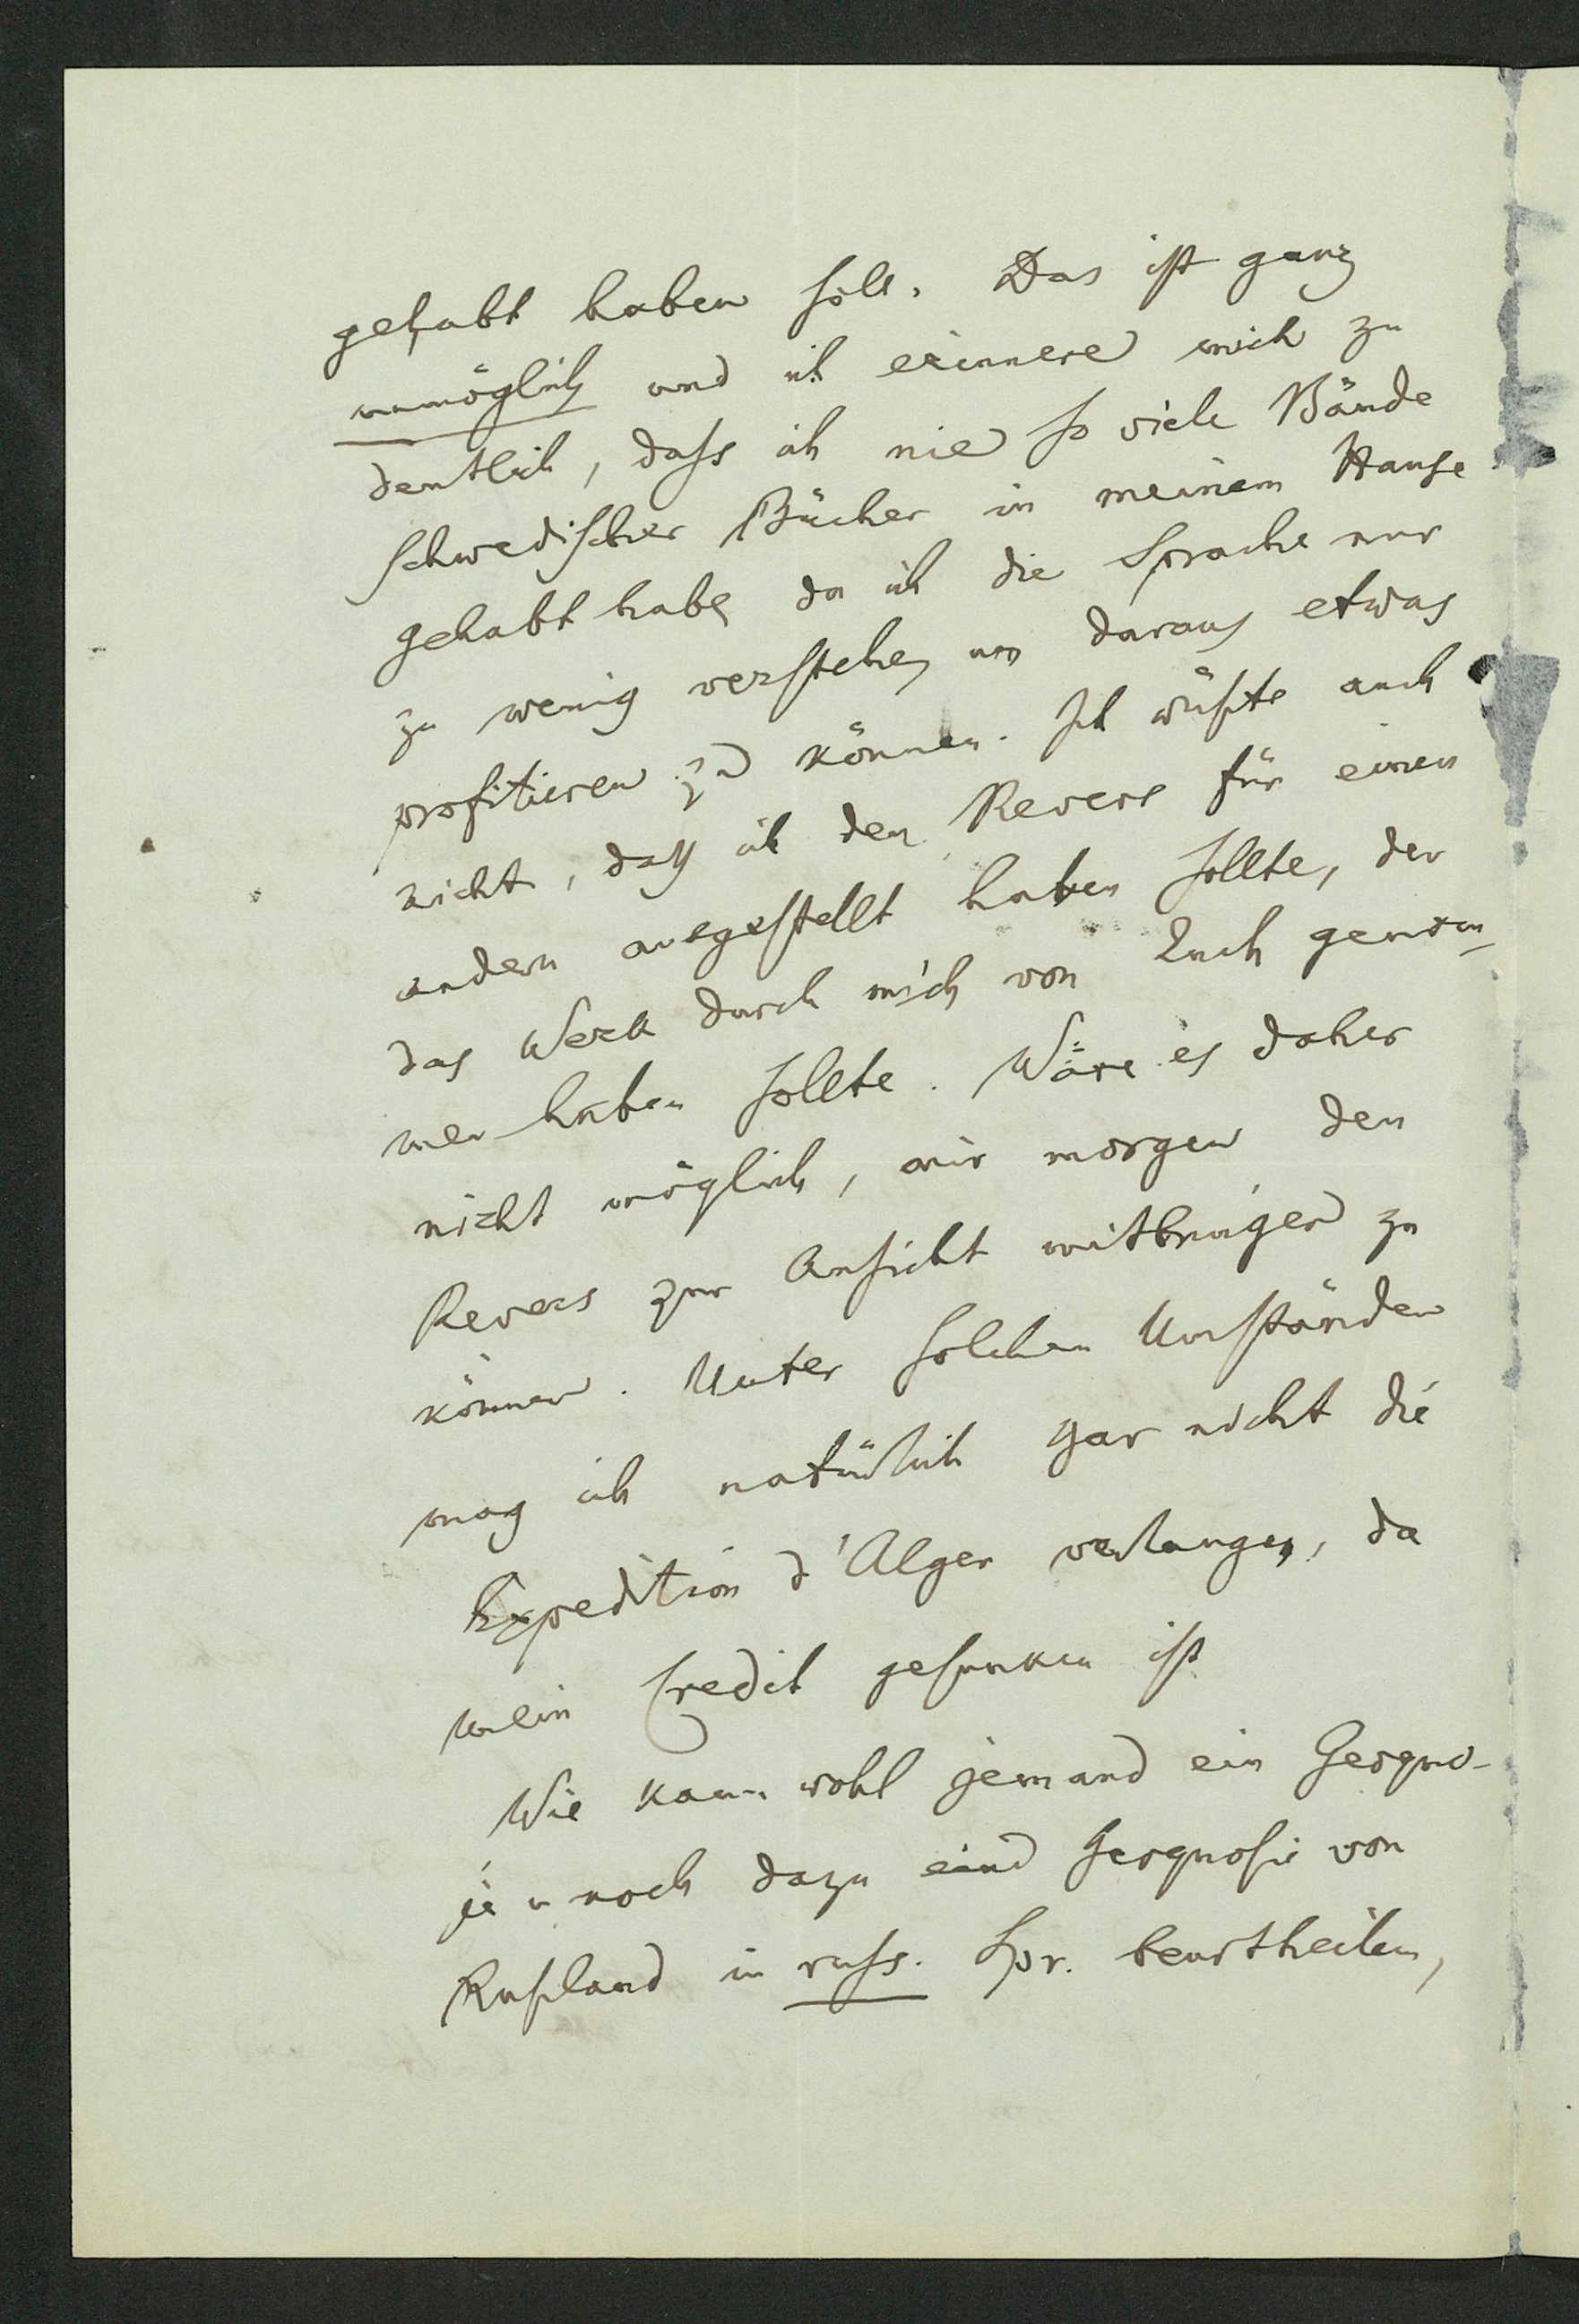 gehabt haben soll. Das ist ganz
unmöglich und ich erinnere mich zu
deutlich, dass ich nie so viele Bände
schwedischer Bücher in meinem Hause
gehabt habe, da ich die Sprache nur
zu wenig verstehe, um daraus etwas
profitieren zu können. Ich wüsste auch
nicht, dass ich den Revers für einen
andern ausgestellt haben sollte, der
das Werk durch mich von Euch genom-
men haben sollte. Wäre es daher
nicht möglich, mir morgen den
Revers zur Ansicht mitbringen zu
können. Unter solchen Umständen
mag ich natürlich gar nicht die
Expedition d'Alger verlangen, da
mein Credit gesunken ist
Wie kann wohl jemand ein Geogno-
sie u noch dazu eine Geognosie von
Russland in russ. Spr. beurtheilen,